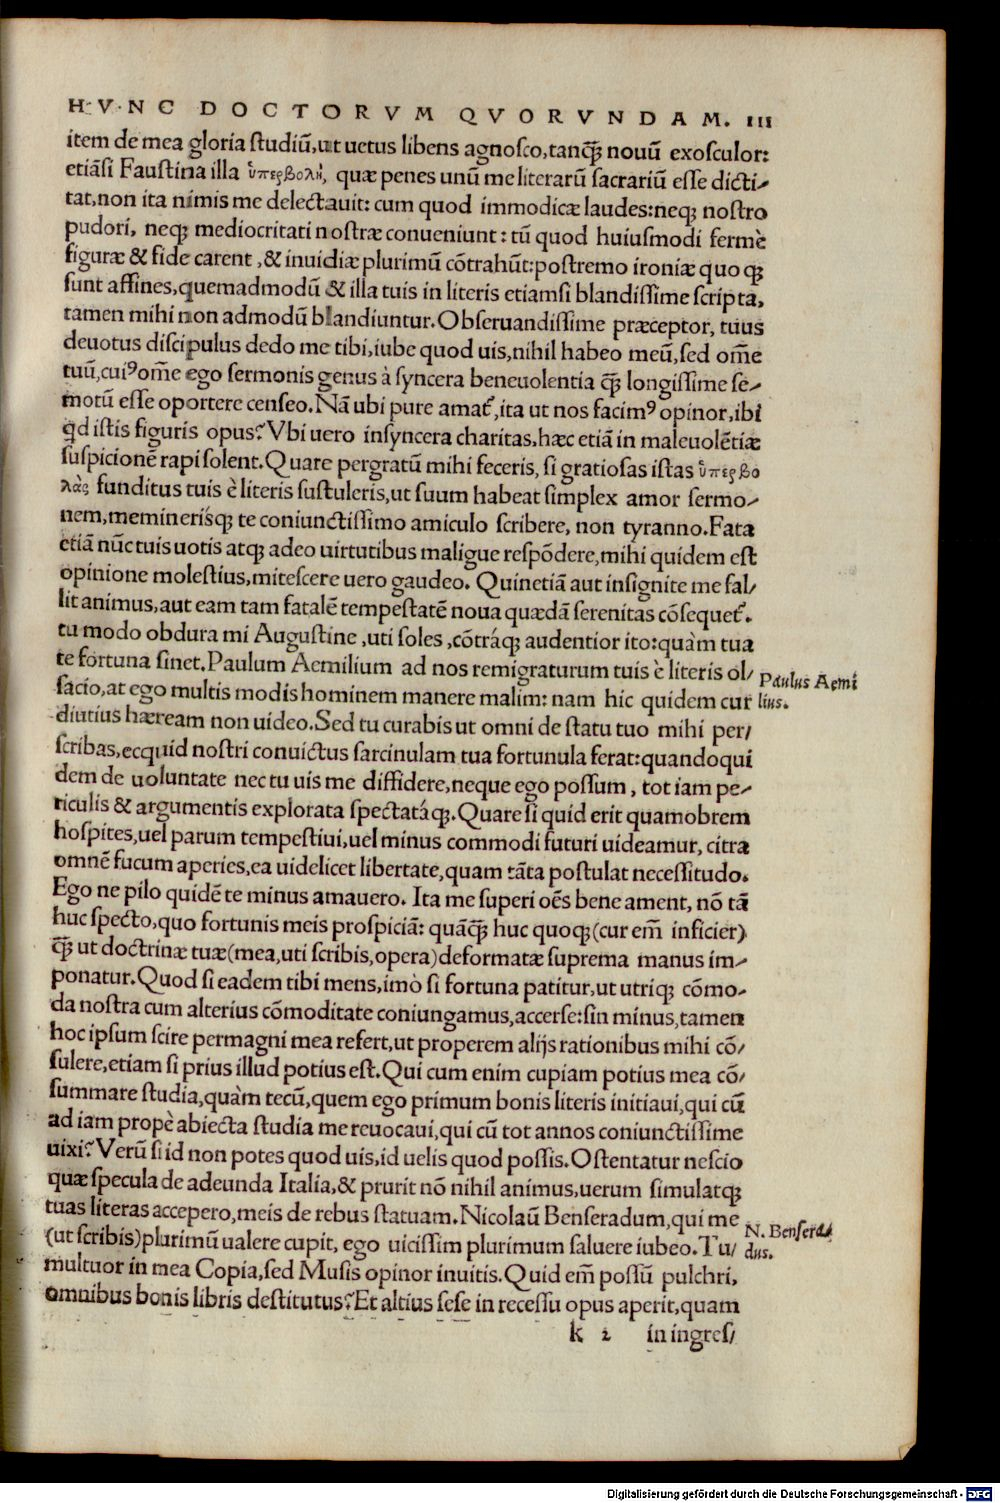 HVNC DOCTORVM QVORVNDAM. III
item de mea gloria ſtudiũ, ut uetus libens agnoſco, tanq̃ nouũ exoſculor:
etiãſi Fauſtina illa ὑπερβολὴ, quæ penes unũ me literarũ ſacrariũ eſſe dicti-
tat, non ita nimis me delectauit: cum quod immodicæ laudes: neq; noſtro
pudori, neq; mediocritati noſtræ conueniunt: tũ quod huiuſmodi fermè
figuræ & fide carent, & inuidiæ plurimũ cõtrahũt: poſtremo ironiæ quoq;
ſunt affines, quemadmodũ & illa tuis in literis etiamſi blandiſſime ſcripta,
tamen mihi non admodũ blandiuntur. Obſeruandiſſime præceptor, tuus
deuotus diſcipulus dedo me tibi, iube quod uis, nihil habeo meũ, ſed om̃e
tuũ, cuiꝰ om̃e ego ſermonis genus à ſyncera beneuolentia q̃ longiſſime ſe-
motũ eſſe oportere cenſeo. Nã ubi pure amat᷑, ita ut nos facimꝰ opinor, ibi
qd iſtis figuris opus? Vbi uero inſyncera charitas, hæc etiã in maleuolẽtiæ
ſuſpicionẽ rapi ſolent. Quare pergratũ mihi feceris, ſi gratioſas iſtas ὑπερβο
λὰς funditus tuis è literis ſuſtuleris, ut ſuum habeat ſimplex amor ſermo-
nem, memineriſq; te coniunctiſſimo amiculo ſcribere, non tyranno. Fata
etiã nũc tuis uotis atq; adeo uirtutibus maligue reſpõdere, mihi quidem eſt
opinione moleſtius, miteſcere uero gaudeo. Quinetiã aut inſignite me fal/
lit animus, aut eam tam fatalẽ tempeſtatẽ noua quædã ſerenitas cõſequet᷑.
tu modo obdura mi Auguſtine, uti ſoles, cõtráq; audentior ito: quàm tua
te fortuna ſinet. Paulum Aemilium ad nos remigraturum tuis è literis ol/
Paulus Aemi
facio, at ego multis modis hominem manere malim: nam hic quidem cur
lius.
diutius hæream non uideo. Sed tu curabis ut omni de ſtatu tuo mihi per/
ſcribas, ecquid noſtri conuictus ſarcinulam tua fortunula ferat: quandoqui
dem de uoluntate nec tu uis me diffidere, neque ego poſſum, tot iam pe-
riculis & argumentis explorata ſpectatáq;. Quare ſi quid erit quamobrem
hoſpites, uel parum tempeſtiui, uel minus commodi futuri uideamur, citra
omnẽ fucum aperies, ea uidelicet libertate, quam tãta poſtulat neceſſitudo.
Ego ne pilo quidẽ te minus amauero. Ita me ſuperi oẽs bene ament, nõ tã
huc ſpecto, quo fortunis meis proſpiciã: quãq̃ huc quoq; (cur em̃ inficier)
q̃ ut doctrinæ tuæ (mea, uti ſcribis, opera) deformatæ ſuprema manus im-
ponatur. Quod ſi eadem tibi mens, imò ſi fortuna patitur, ut utriq; cõmo-
da noſtra cum alterius cõmoditate coniungamus, accerſe: ſin minus, tamen
hoc ipſum ſcire permagni mea refert, ut properem alijs rationibus mihi cõ/
ſulere, etiam ſi prius illud potius eſt. Qui cum enim cupiam potius mea cõ/
ſummare ſtudia, quàm tecũ, quem ego primum bonis literis initiaui, qui cũ
ad iam propè abiecta ſtudia me reuocaui, qui cũ tot annos coniunctiſſime
uixi? Verũ ſi id non potes quod uis, id uelis quod poſſis. Oſtentatur neſcio
quæ ſpecula de adeunda Italia, & prurit nõ nihil animus, uerum ſimulatq;
tuas literas accepero, meis de rebus ſtatuam. Nicolaũ Benſeradum, qui me
N. Benſera
(ut ſcribis) plurimũ ualere cupit, ego uiciſſim plurimum ſaluere iubeo. Tu/
dus.
multuor in mea Copia, ſed Muſis opinor inuitis. Quid em̃ poſſũ pulchri,
omnibus bonis libris deſtitutus? Et altius ſeſe in receſſu opus aperit, quam
k 2 in ingreſ/
Digitalisierung gefördert durch die Deutsche Forschungsgemeinschaft - DFG